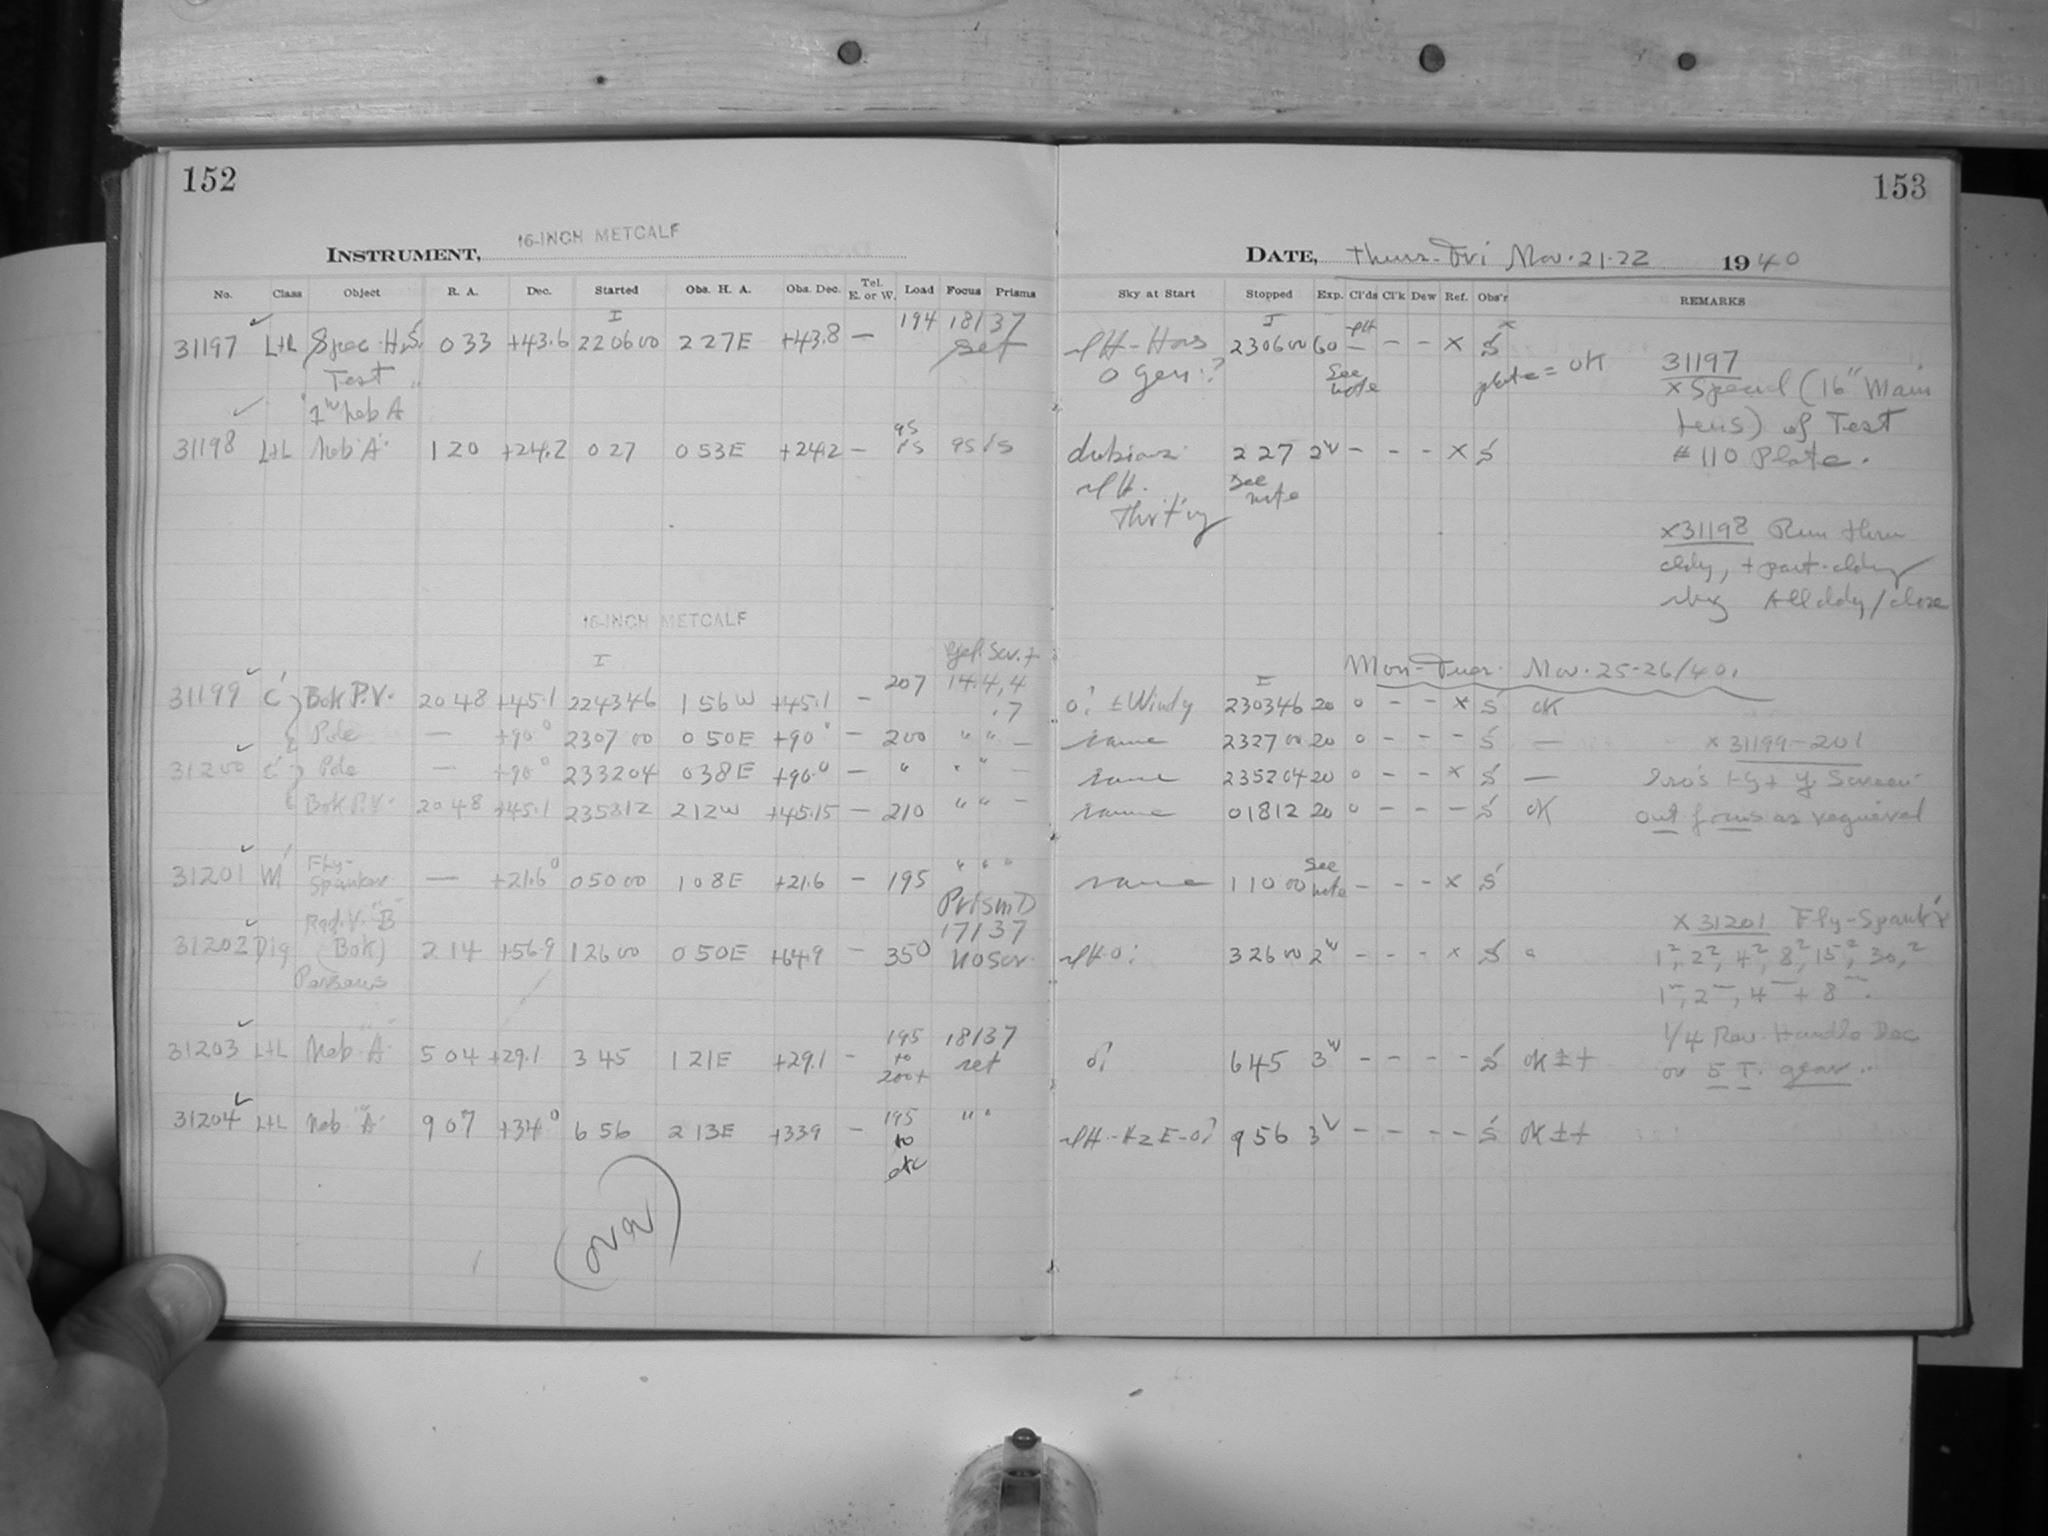 152
16-INCH METCALF
INSTRUMENT,
No. Class Object R. A. Dec. Started Obs. H. A. Obs. Dec. Tel. E. or W. Load Focus Prisms
I 194 18137
31197 L+L Spec. 0 33 +43.6 22 06 00 2 27 E +43.8 — set
Test
Neb A
95
31198 L+L Neb "A" 1 20 +24.2 0 27 0 53 E +24.2 —
16-INCH METCALF
I
31199 C' Bok P.V. 20 48 +45.1 22 43 46 1 56 W +45.1 — 207 14.4,4
.7
Pole — +90° 23 07 00 0 50 E +90° — 200 " " —
31200 C' Pole — +90° 23 32 04 0 38 E +90° — " " " —
Bok P.V. 20 48 +45.1 23 58 12 2 12 W +45.15 — 210 " " —
Fly-
31201 Spanker — +21.6° 0 50 00 1 08 E +21.6 — 195 " " "
Rad. V. "B" Prism D
17137
31202 Dig (Bok) 2 14 +56.9 1 26 00 0 50 E +64.9 — 350 no scr.
Parsons
31203 L+L Neb "A" 5 04 +29.1 3 45 1 21 E +29.1 — 195 18137
to set
200+
31204 L+L Neb "A" 9 07 +34° 6 56 2 13 E +33.9 — 195 " "
to
etc
(over)
153
DATE, Thurs-Fri Nov. 21-22 1940
Sky at Start Stopped Exp. Cl'ds Cl'k Dew Ref. Obs'r REMARKS
I
23 06 00 60 — — — x S
See note plate = OK
31197
x Special (16" Main
lens) of Test
# 110 Plate.
dubious 2 27 2 — — — x S
See
note
x31198 Run thru
cldy, + part. cldy
sky All cldy/close
Mon-Tues. Nov. 25-26/40.
I
± Windy 23 03 46 20 0 — — x S OK
same 23 27 00 20 0 — — — S —
x 31199-201
same 23 52 04 20 0 — — x S —
Screen
same 0 18 12 20 0 — — — S OK
out focus as required
See
same 1 10 00 note — — — x S
3 26 00 2 — — — x S
x 31201 Fly-Spank'r
1ˢ, 2ˢ, 4ˢ, 8ˢ, 15ˢ, 30ˢ,
1ᵐ, 2ᵐ, 4ᵐ + 8ᵐ.
1/4 Rev. Handle Dec
or 5 T. gear.
6 45 3 — — — — S OK ± +
9 56 3 — — — — S OK ± +